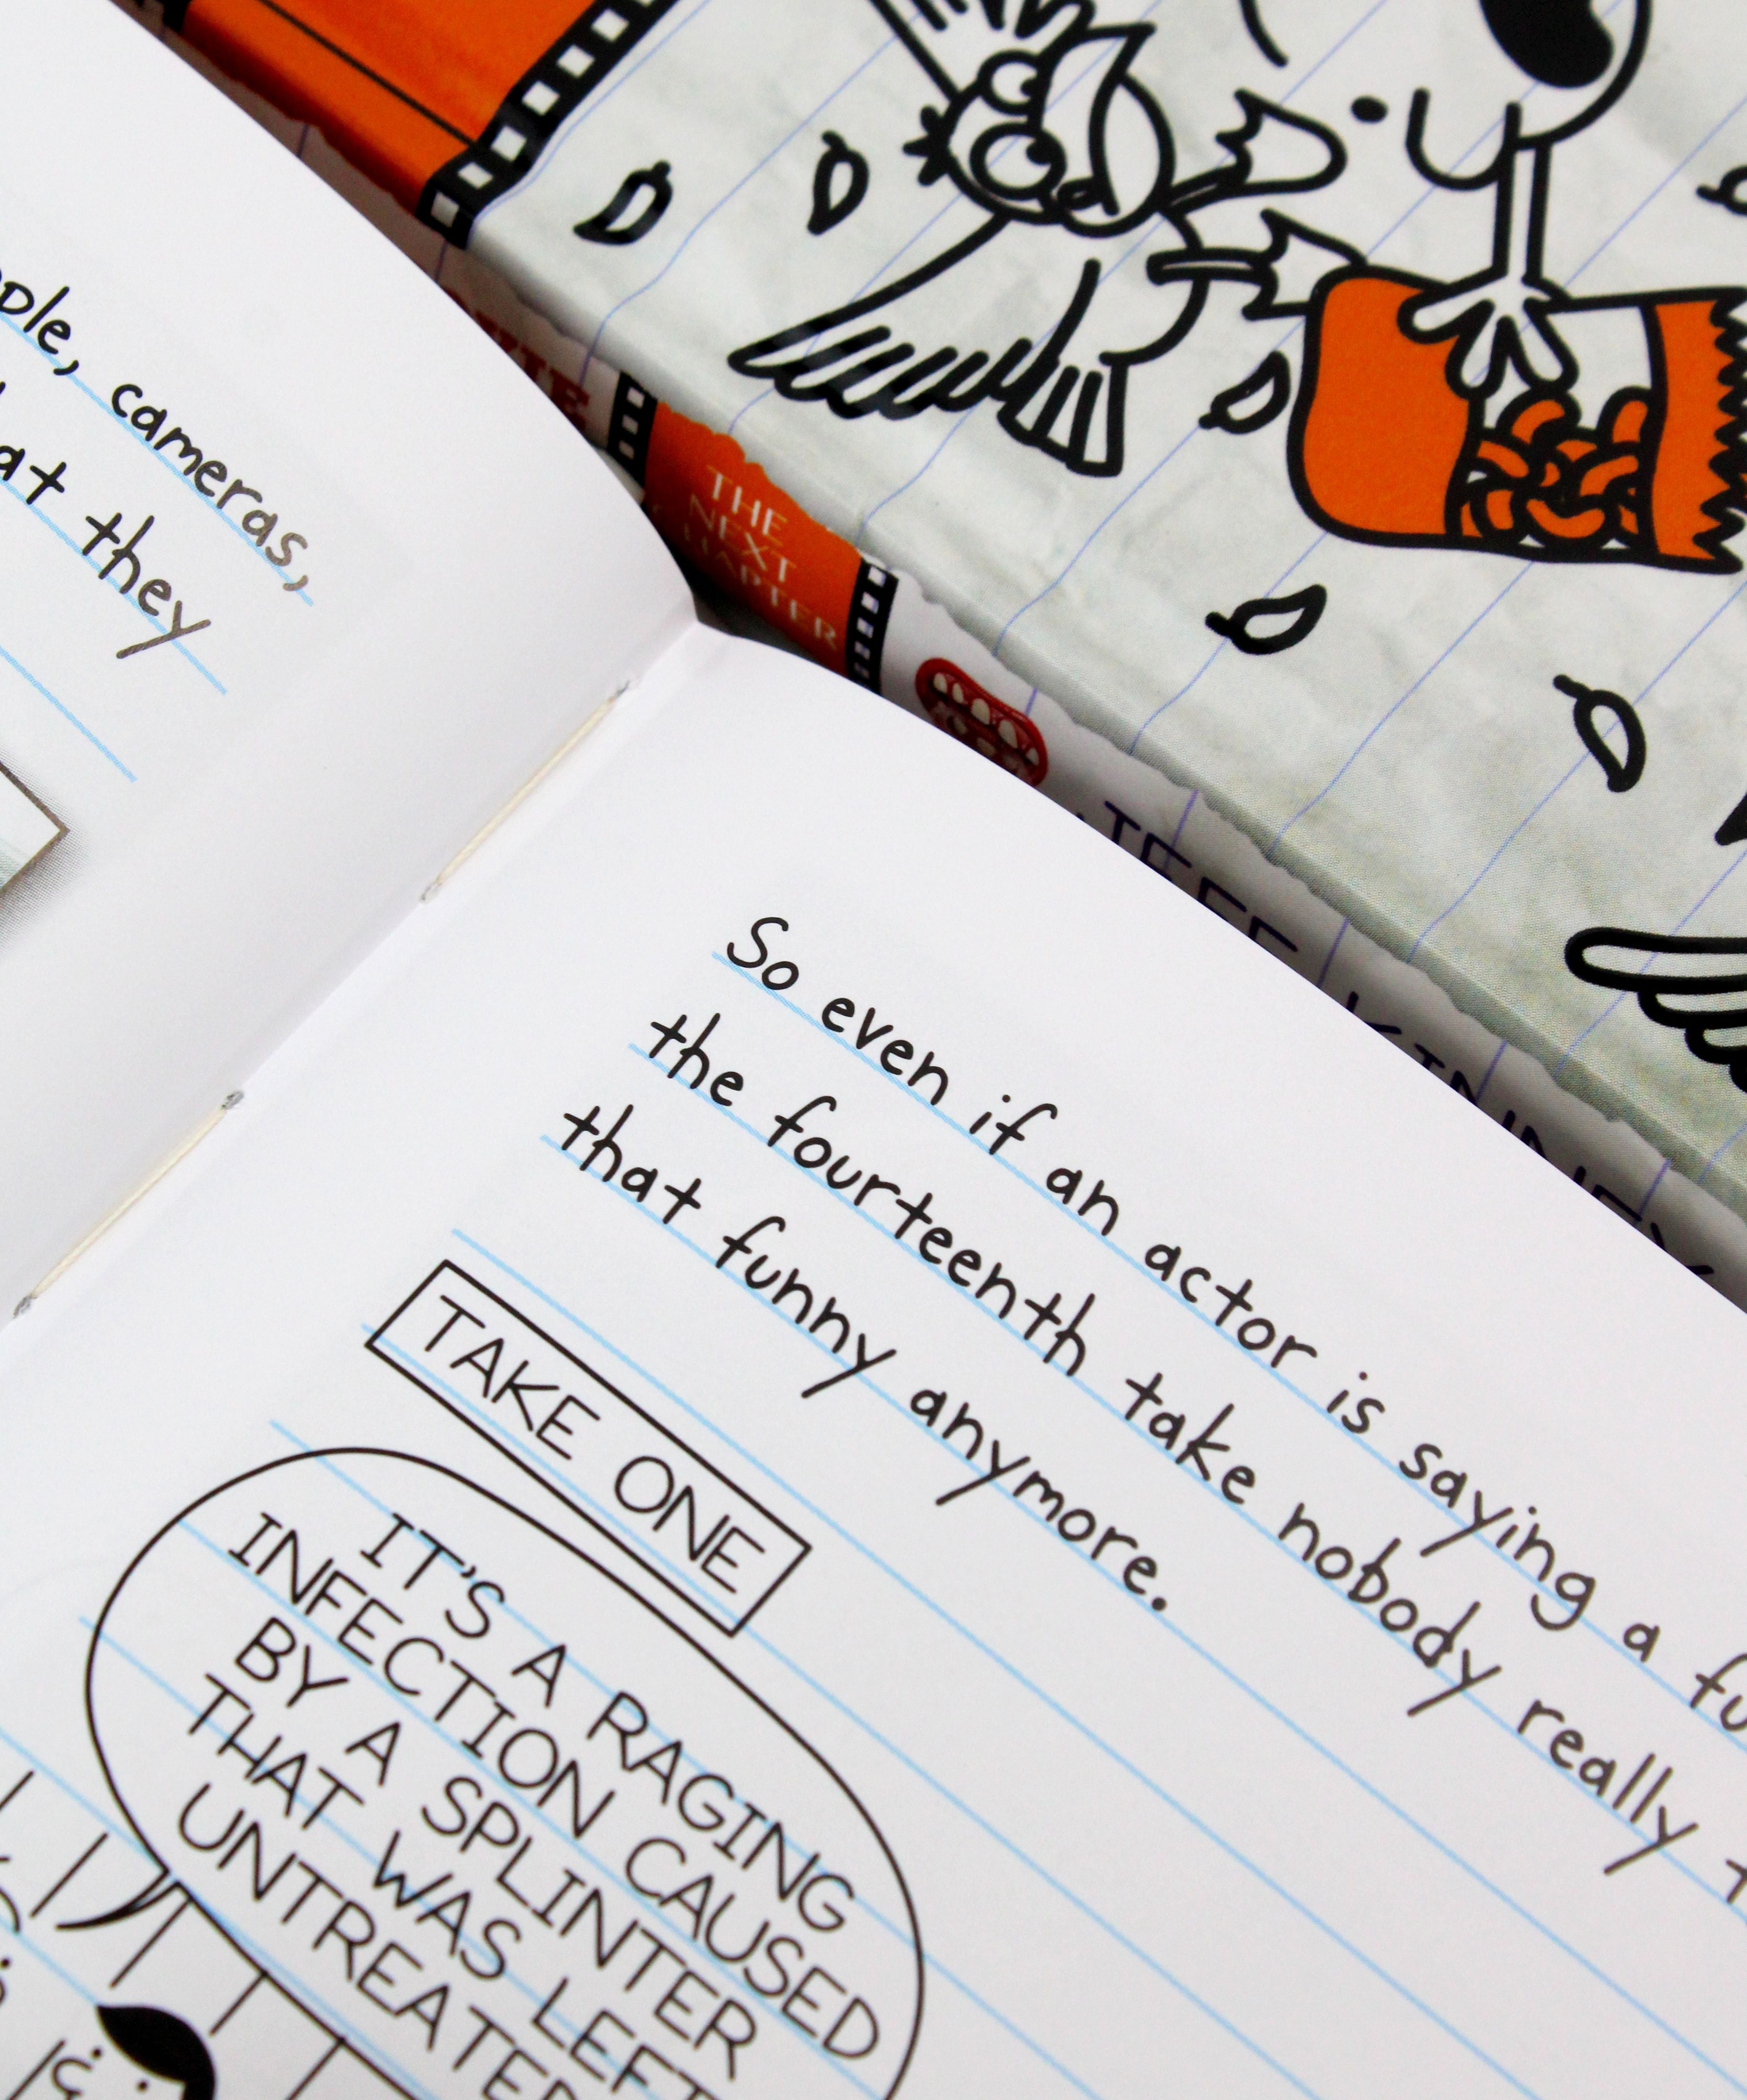 cameras,
they
THE
NEXT
CHAPTER
KINNEY
So even if an actor is saying a
the fourteenth take nobody really
that funny anymore.
TAKE ONE
IT'S A RAGING
INFECTION CAUSED
BY A SPLINTER
THAT WAS LEFT
UNTREATED